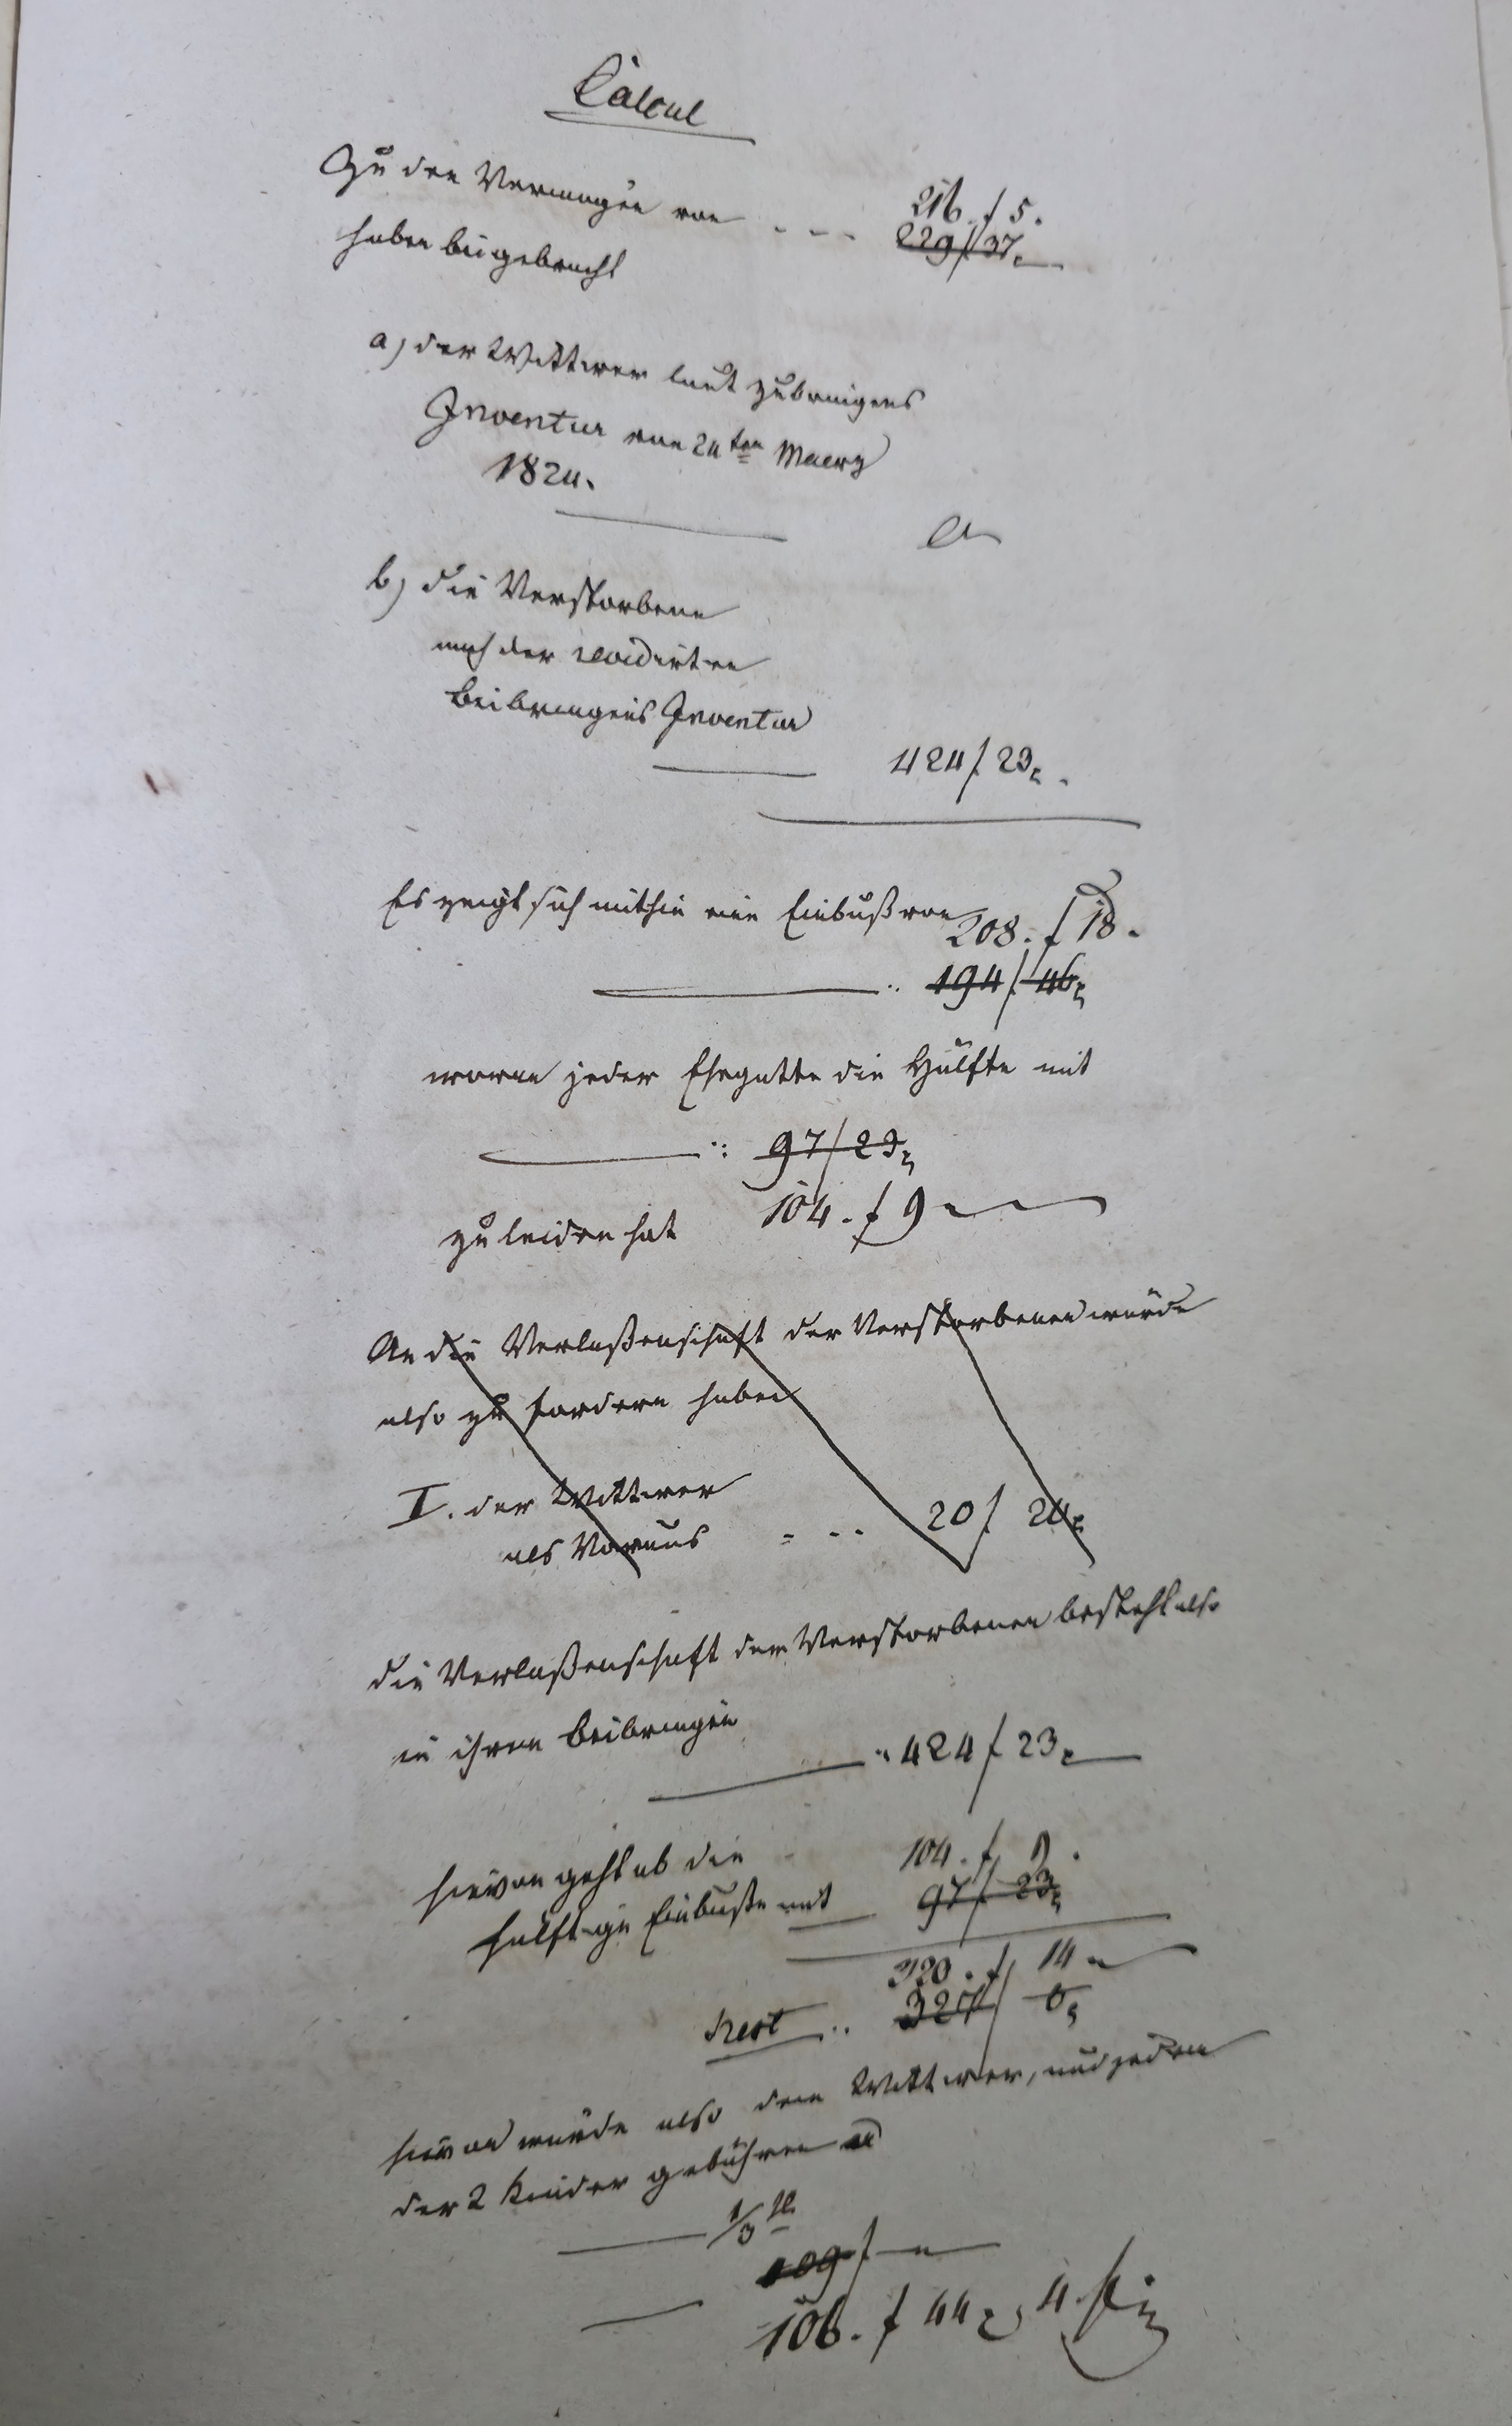 Calcul
Zu dem Vermögen von - - - 216. f 5.
229 f 37.
haben beigebracht
a) der Wittwer laut Zubringens
Inventur vom 24ten Maerz
1824.
b) die Verstorbene
nach der revidirten
Beibringens Inventur
424 f 23.
Es zeigt sich mithin eine Einbuß von
208. f 18.
194 f 46
wovon jeder Ehegatte die Hälfte mit
97 f 23
zu leiden hat 104. f 9
An die Verlaßenschaft der Verstorbenen würde
also zu fordern haben
I. der Wittwer
als Voraus - - - 20 f 24
die Verlaßenschaft der Verstorbenen besteht also
in ihrem Beibringen
424 f 23
104. f 9.
hievon geht ab die
hälftige Einbuße mit 97 f 23
320. f 14
Rest .. 327 f 0
hievon würde also dem Wittwer, und jedem
der 2 Kinder gebühren
1/3tl
109 f
106. f 44 4.